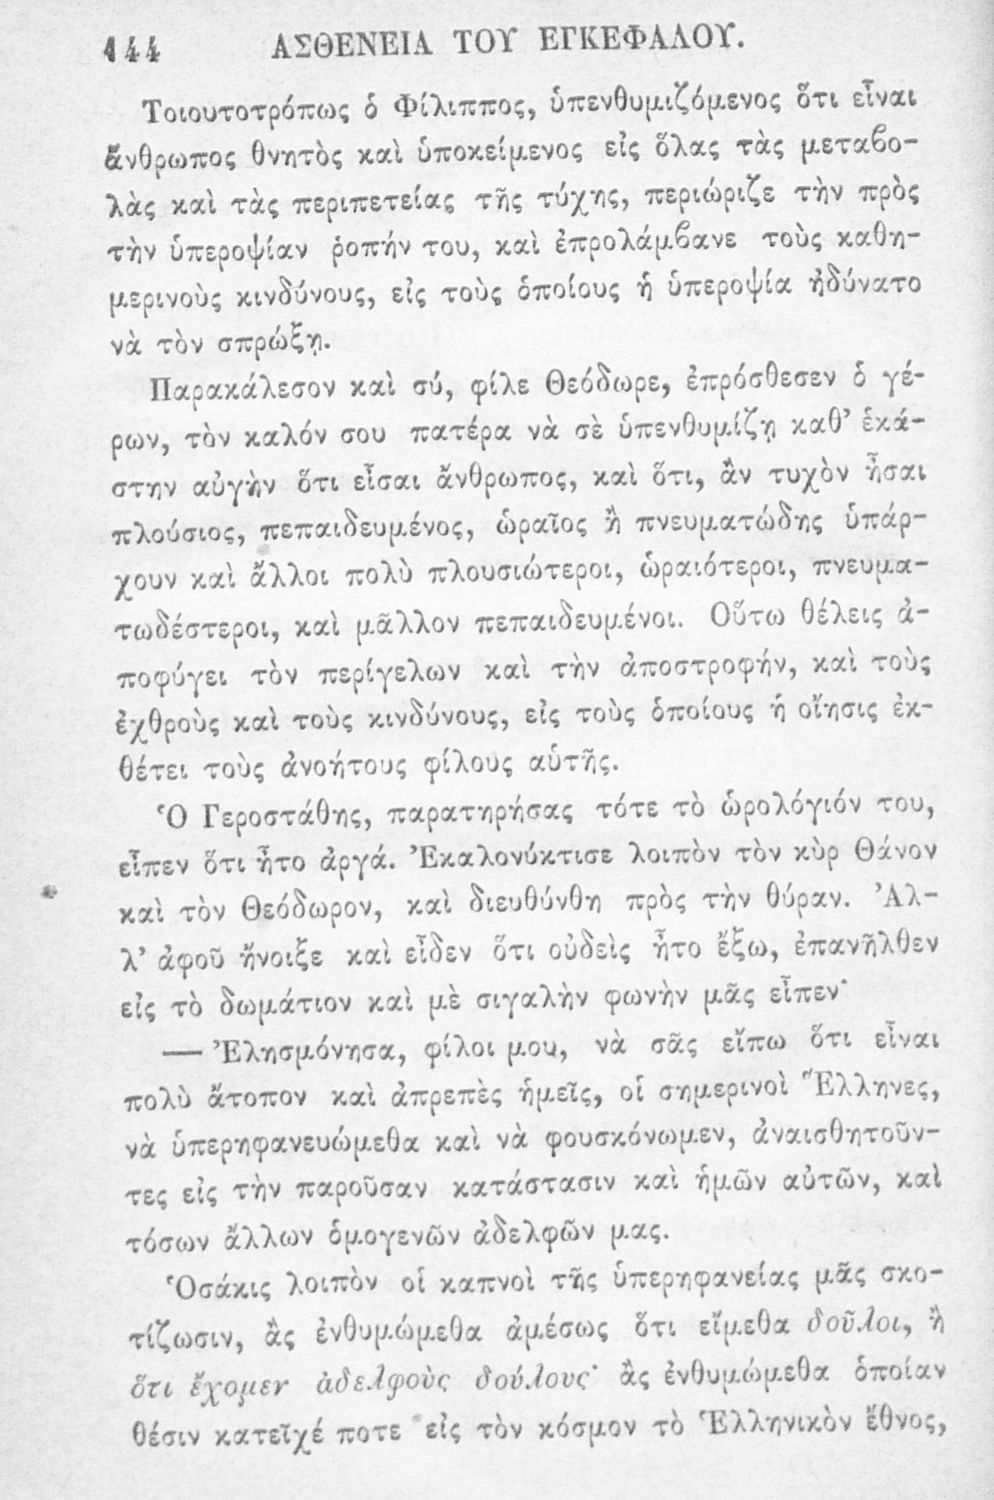 144 ΑΣΘΕΝΕΙΑ ΤΟΥ ΕΓΚΕΦΑΛΟΥ.
Τοιουτοτρόπως ὁ Φίλιππος, ὑπενθυμιζόμενος ὅτι εἶναι
ἄνθρωπος θνητὸς καὶ ὑποκείμενος εἰς ὅλας τὰς μεταβο-
λὰς καὶ τὰς περιπετείας τῆς τύχης, περιώριζε τὴν πρὸς
τὴν ὑπεροψίαν ῥοπήν του, καὶ ἐπρολάμβανε τοὺς καθη-
μερινοὺς κινδύνους, εἰς τοὺς ὁποίους ἡ ὑπεροψία ἠδύνατο
νὰ τὸν σπρώξῃ.
Παρακάλεσον καὶ σύ, φίλε Θεόδωρε, ἐπρόσθεσεν ὁ γέ-
ρων, τὸν καλόν σου πατέρα νὰ σὲ ὑπενθυμίζῃ καθ’ ἑκά-
στην αὐγὴν ὅτι εἶσαι ἄνθρωπος, καὶ ὅτι, ἂν τυχὸν ἦσαι
πλούσιος, πεπαιδευμένος, ὡραῖος ἢ πνευματώδης ὑπάρ-
χουν καὶ ἄλλοι πολὺ πλουσιώτεροι, ὡραιότεροι, πνευμα-
τωδέστεροι, καὶ μᾶλλον πεπαιδευμένοι. Οὕτω θέλεις ἀ-
ποφύγει τὸν περίγελων καὶ τὴν ἀποστροφήν, καὶ τοὺς
ἐχθροὺς καὶ τοὺς κινδύνους, εἰς τοὺς ὁποίους ἡ οἴησις ἐκ-
θέτει τοὺς ἀνοήτους φίλους αὑτῆς.
Ὁ Γεροστάθης, παρατηρήσας τότε τὸ ὡρολόγιόν του,
εἶπεν ὅτι ἦτο ἀργά. Ἐκαλονύκτισε λοιπὸν τὸν κὺρ Θάνον
καὶ τὸν Θεόδωρον, καὶ διευθύνθη πρὸς τὴν θύραν. Ἀλ-
λ’ ἀφοῦ ἤνοιξε καὶ εἶδεν ὅτι οὐδεὶς ἦτο ἔξω, ἐπανῆλθεν
εἰς τὸ δωμάτιον καὶ μὲ σιγαλὴν φωνὴν μᾶς εἶπεν·
— Ἐλησμόνησα, φίλοι μου, νὰ σᾶς εἴπω ὅτι εἶναι
πολὺ ἄτοπον καὶ ἀπρεπὲς ἡμεῖς, οἱ σημερινοὶ Ἕλληνες,
νὰ ὑπερηφανευώμεθα καὶ νὰ φουσκόνωμεν, ἀναισθητοῦν-
τες εἰς τὴν παροῦσαν κατάστασιν καὶ ἡμῶν αὐτῶν, καὶ
τόσων ἄλλων ὁμογενῶν ἀδελφῶν μας.
Ὁσάκις λοιπὸν οἱ καπνοὶ τῆς ὑπερηφανείας μᾶς σκο-
τίζωσιν, ἂς ἐνθυμώμεθα ἀμέσως ὅτι εἴμεθα δοῦλοι, ἢ
ὅτι ἔχομεν ἀδελφοὺς δούλους· ἂς ἐνθυμώμεθα ὁποίαν
θέσιν κατεῖχέ ποτε εἰς τὸν κόσμον τὸ Ἑλληνικὸν ἔθνος,